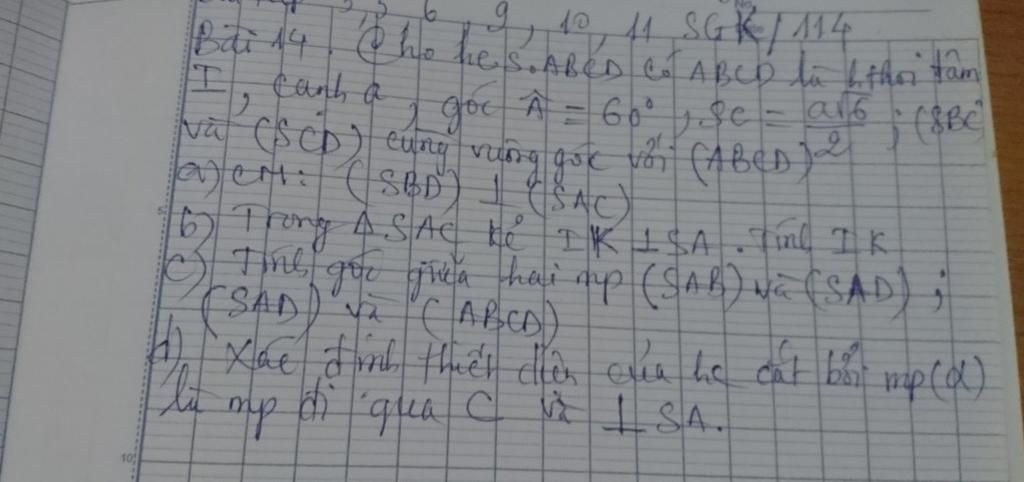 6, 9, 10, 11 SGK/114
Bài 14. Cho hc S.ABCD có ABCD là h.thoi tâm
I, cạnh a, góc Â = 60°, SC = a√6/2; (SBC)
và (SCD) cùng vuông góc với (ABCD)
a) CM: (SBD) ⊥ (SAC)
b) Trong Δ SAC kẻ IK ⊥ SA. Tính IK
c) Tính góc giữa hai mp (SAB) và (SAD);
(SAD) và (ABCD)
d) Xác định thiết diện của hc cắt bởi mp(α)
là mp đi qua C và ⊥ SA.
10